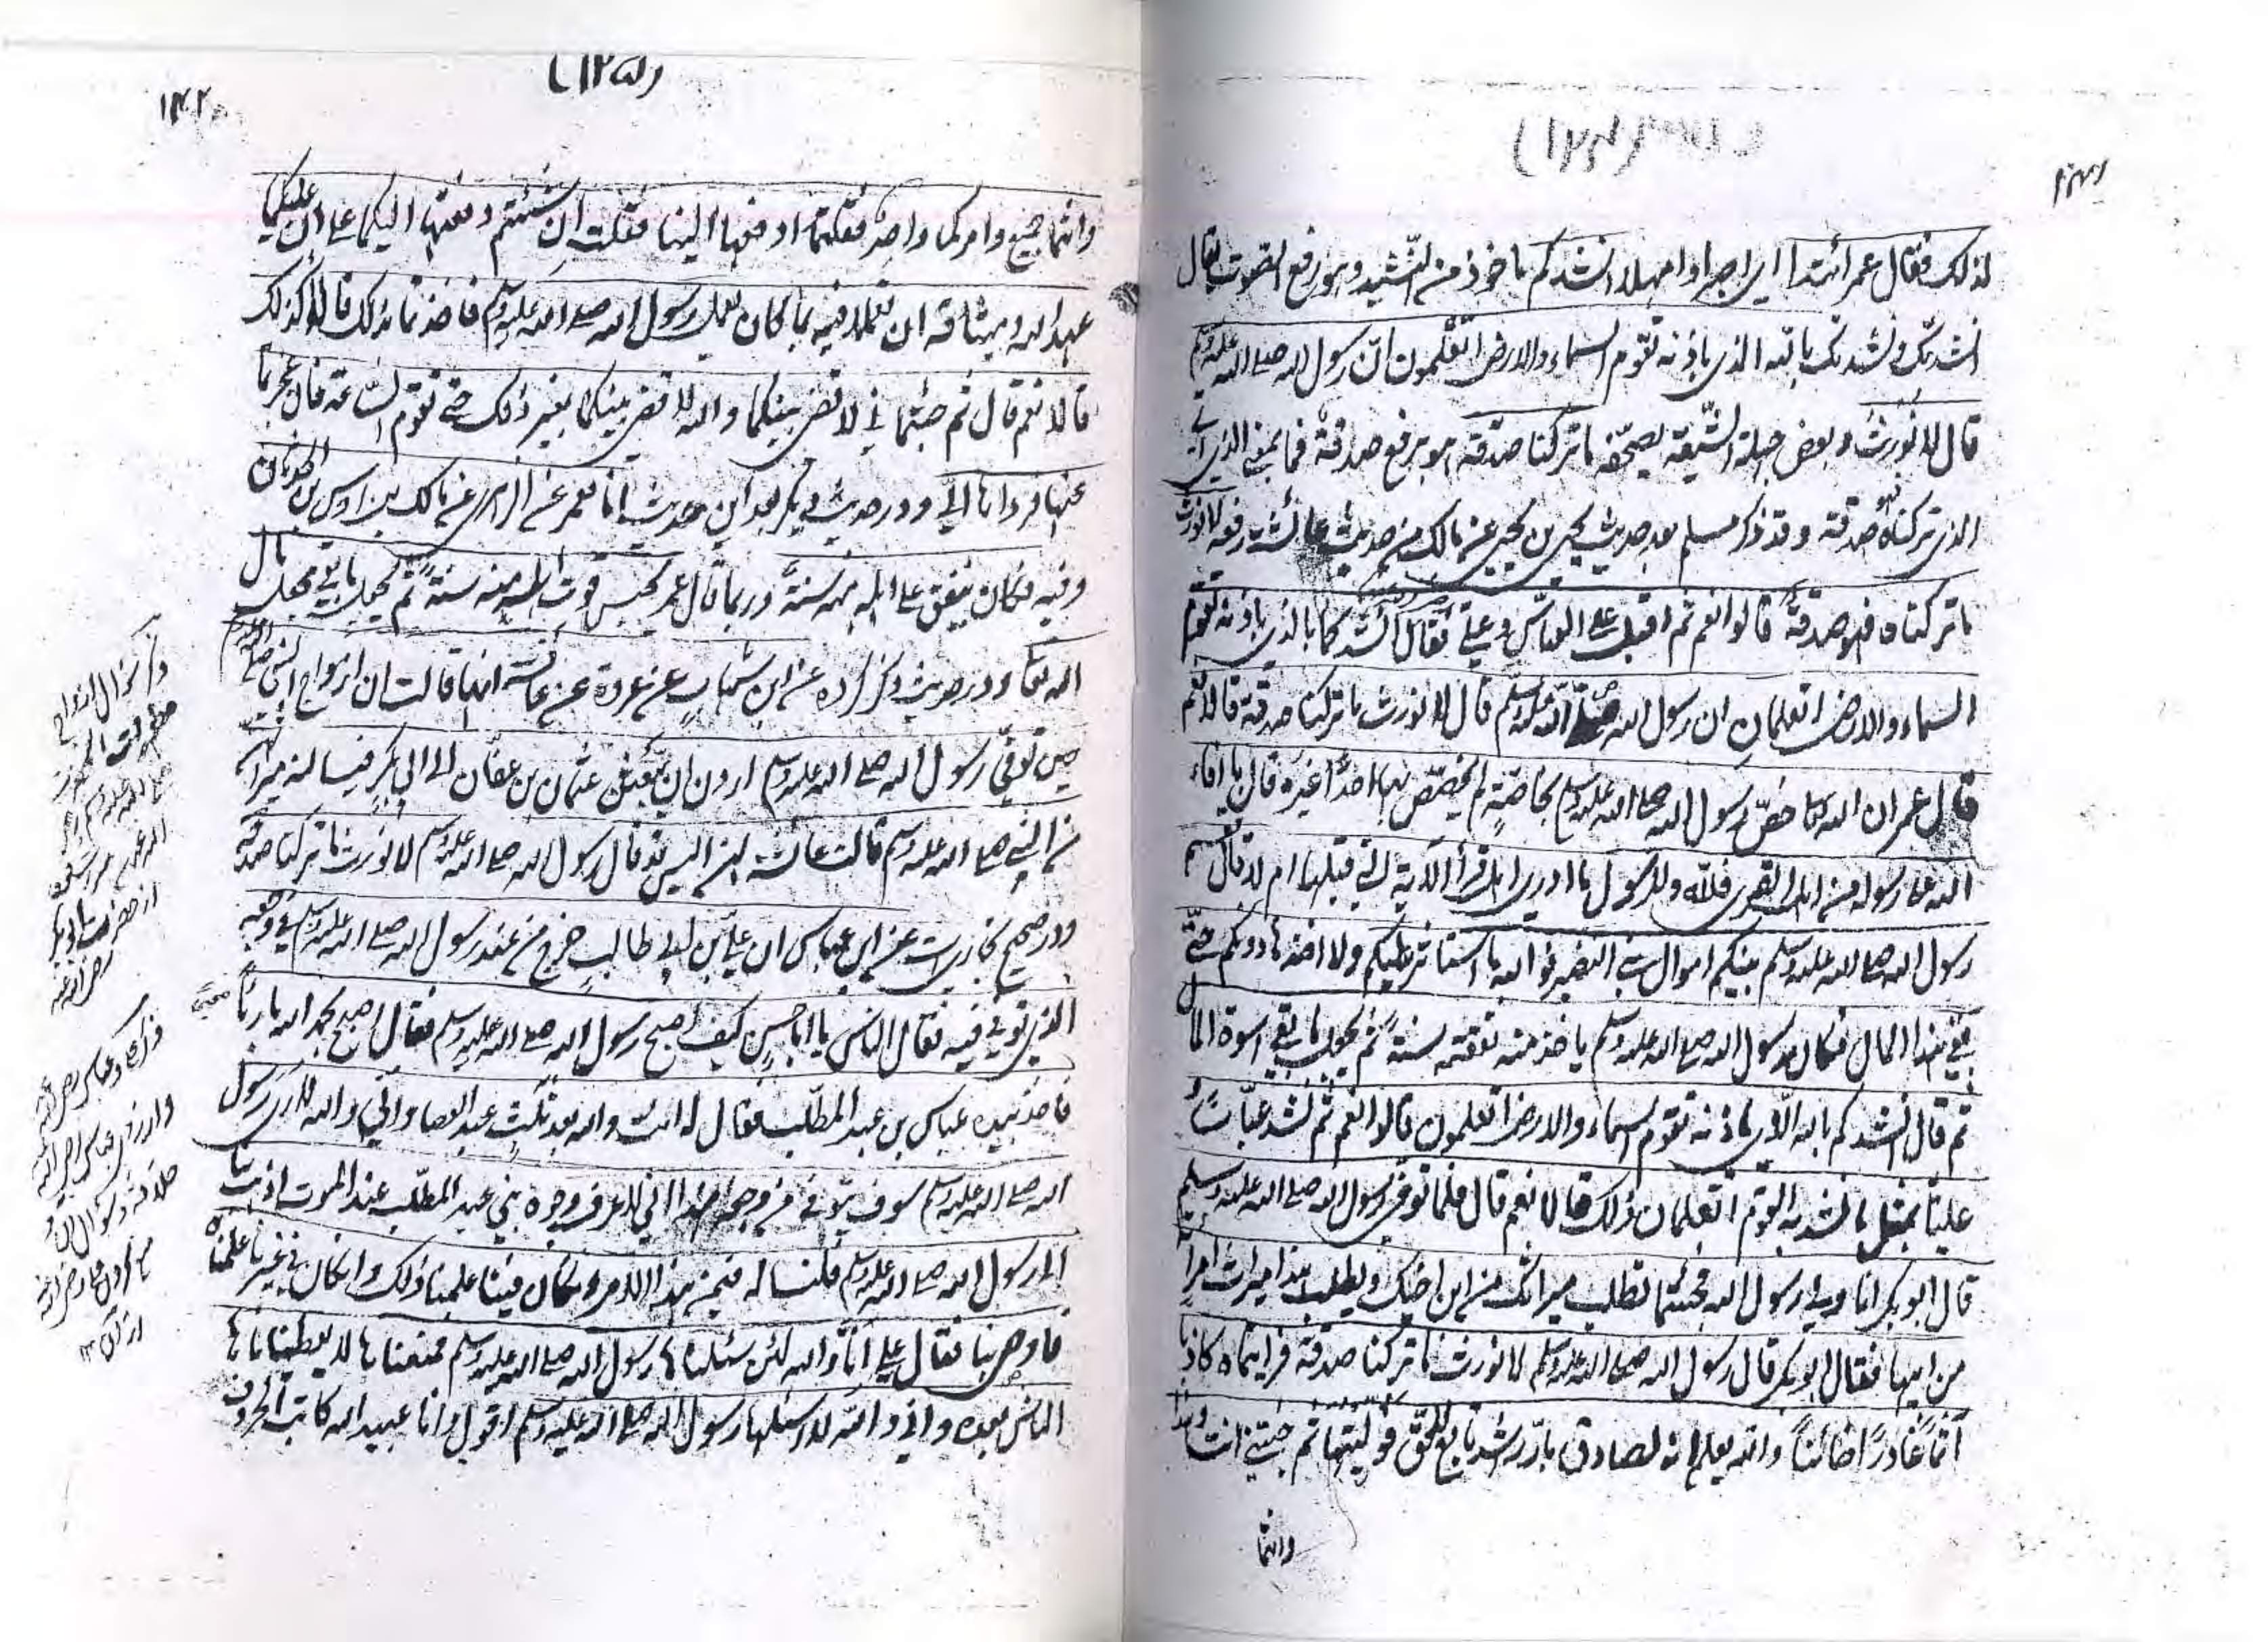 لذلك فقال عمر اتئدا اي اصبرا وامهلا انشدكم ماخوذ من النشيد وهو رفع الصوت يقال
انشدتك ونشدتك بالله الذي باذنه تقوم السماء والارض اتعلمون ان رسول الله صلے الله عليه وسلم
قال لا نورث وبعض جهلة الشيعة يصحفه ما تركنا صدقة هو برفع صدقة فما بمعنى الذي اي
الذي تركناه صدقة وقد ذكر مسلم بعد حديث يحيى بن يحيى عن مالك من حديث عائشة رفعه لا نورث
ما تركناه فهو صدقة قالوا نعم ثم اقبل على العباس وعلي فقال انشدكما بالذي باذنه تقوم
السماء والارض اتعلمان ان رسول الله صلے الله عليه وسلم قال لا نورث ما تركنا صدقة قالا نعم
قال عمر ان الله كان خص رسول الله صلے الله عليه وسلم بخاصة لم يخصص بها احدا غيره قال ما افاء
الله على رسوله من اهل القرى فلله وللرسول ما ادري اهل قرأ الآية التي قبلها ام لا قال قسم
رسول الله صلے الله عليه وسلم بينكم اموال بني النضير فوالله ما استاثر عليكم ولا اخذها دونكم حتى
بقي هذا المال فكان رسول الله صلے الله عليه وسلم ياخذ منه نفقته سنة ثم يجعل ما بقي اسوة المال
ثم قال انشدكم بالله الذي باذنه تقوم السماء والارض اتعلمون قالوا نعم ثم نشد عباسا
عليا بمثل ما نشد به القوم اتعلمان ذلك قالا نعم قال فلما توفي رسول الله صلے الله عليه وسلم
قال ابو بكر انا ولي رسول الله فجئتما تطلب ميراثك من ابن اخيك ويطلب هذا ميراث امرأته
من ابيها فقال ابو بكر قال رسول الله صلے الله عليه وسلم لا نورث ما تركنا صدقة فرايتماه كاذبا
آثما غادرا خائنا والله يعلم انه لصادق بار راشد تابع للحق فوليتها ثم جئتني انت وهذا
وانتما
(۱۲۵)
۱۴۲
وانتما جميع وامركما واحد فقلتما ادفعها الينا فقلت ان شئتم دفعتها اليكما على ان عليكما
عهد الله وميثاقه ان تعملا فيه بما كان يعمل رسول الله صلے الله عليه وسلم فاخذتما بذلك قال اكذلك
قالا نعم قال ثم جئتماني لاقضي بينكما والله لا اقضي بينكما بغير ذلك حتى تقوم الساعة فان عجزتما
عنها فرداها الي ودر حديث ديگر بعد اين حديث انا معمر عن الزهري عن مالك بن اوس بن الحدثان
وفيه فكان ينفق على اهله منه سنة وربما قال معمر يحبس قوت اهله منه سنة ثم يجعل ما بقي مجعل مال
الله تعالى ودر حديث ذكر كرده عن ابن شهاب عن عروة عن عائشة انها قالت ان ازواج النبي صلے الله عليه وسلم
حين توفي رسول الله صلے الله عليه وسلم اردن ان يبعثن عثمان بن عفان الى ابي بكر فيسالنه ميراثهن
من النبي صلے الله عليه وسلم قالت عائشة لهن اليس قد قال رسول الله صلے الله عليه وسلم لا نورث ما تركنا صدقة
ودر صحيح بخاري است عن ابن عباس ان علي بن ابي طالب خرج من عند رسول الله صلے الله عليه وسلم في وجعه
الذي توفي فيه فقال الناس يا ابا حسن كيف اصبح رسول الله صلے الله عليه وسلم فقال اصبح بحمد الله بارئا
فاخذ بيده عباس بن عبد المطلب فقال له انت والله بعد ثلث عبد العصا واني والله لارى رسول
الله صلے الله عليه وسلم سوف يتوفى من وجعه هذا اني لاعرف وجوه بني عبد المطلب عند الموت اذهب بنا
الى رسول الله صلے الله عليه وسلم فلنساله فيمن هذا الامر ان كان فينا علمنا ذلك وان كان في غيرنا علمناه
فاوصى بنا فقال علي انا والله لئن سئلناها رسول الله صلے الله عليه وسلم فمنعناها لا يعطيناها
الناس بعده واني والله لا اسئلها رسول الله صلے الله عليه وسلم اقول وانا عبيد الله كاتب الحروف
از حضرت ابوبكر
رضي الله عنه